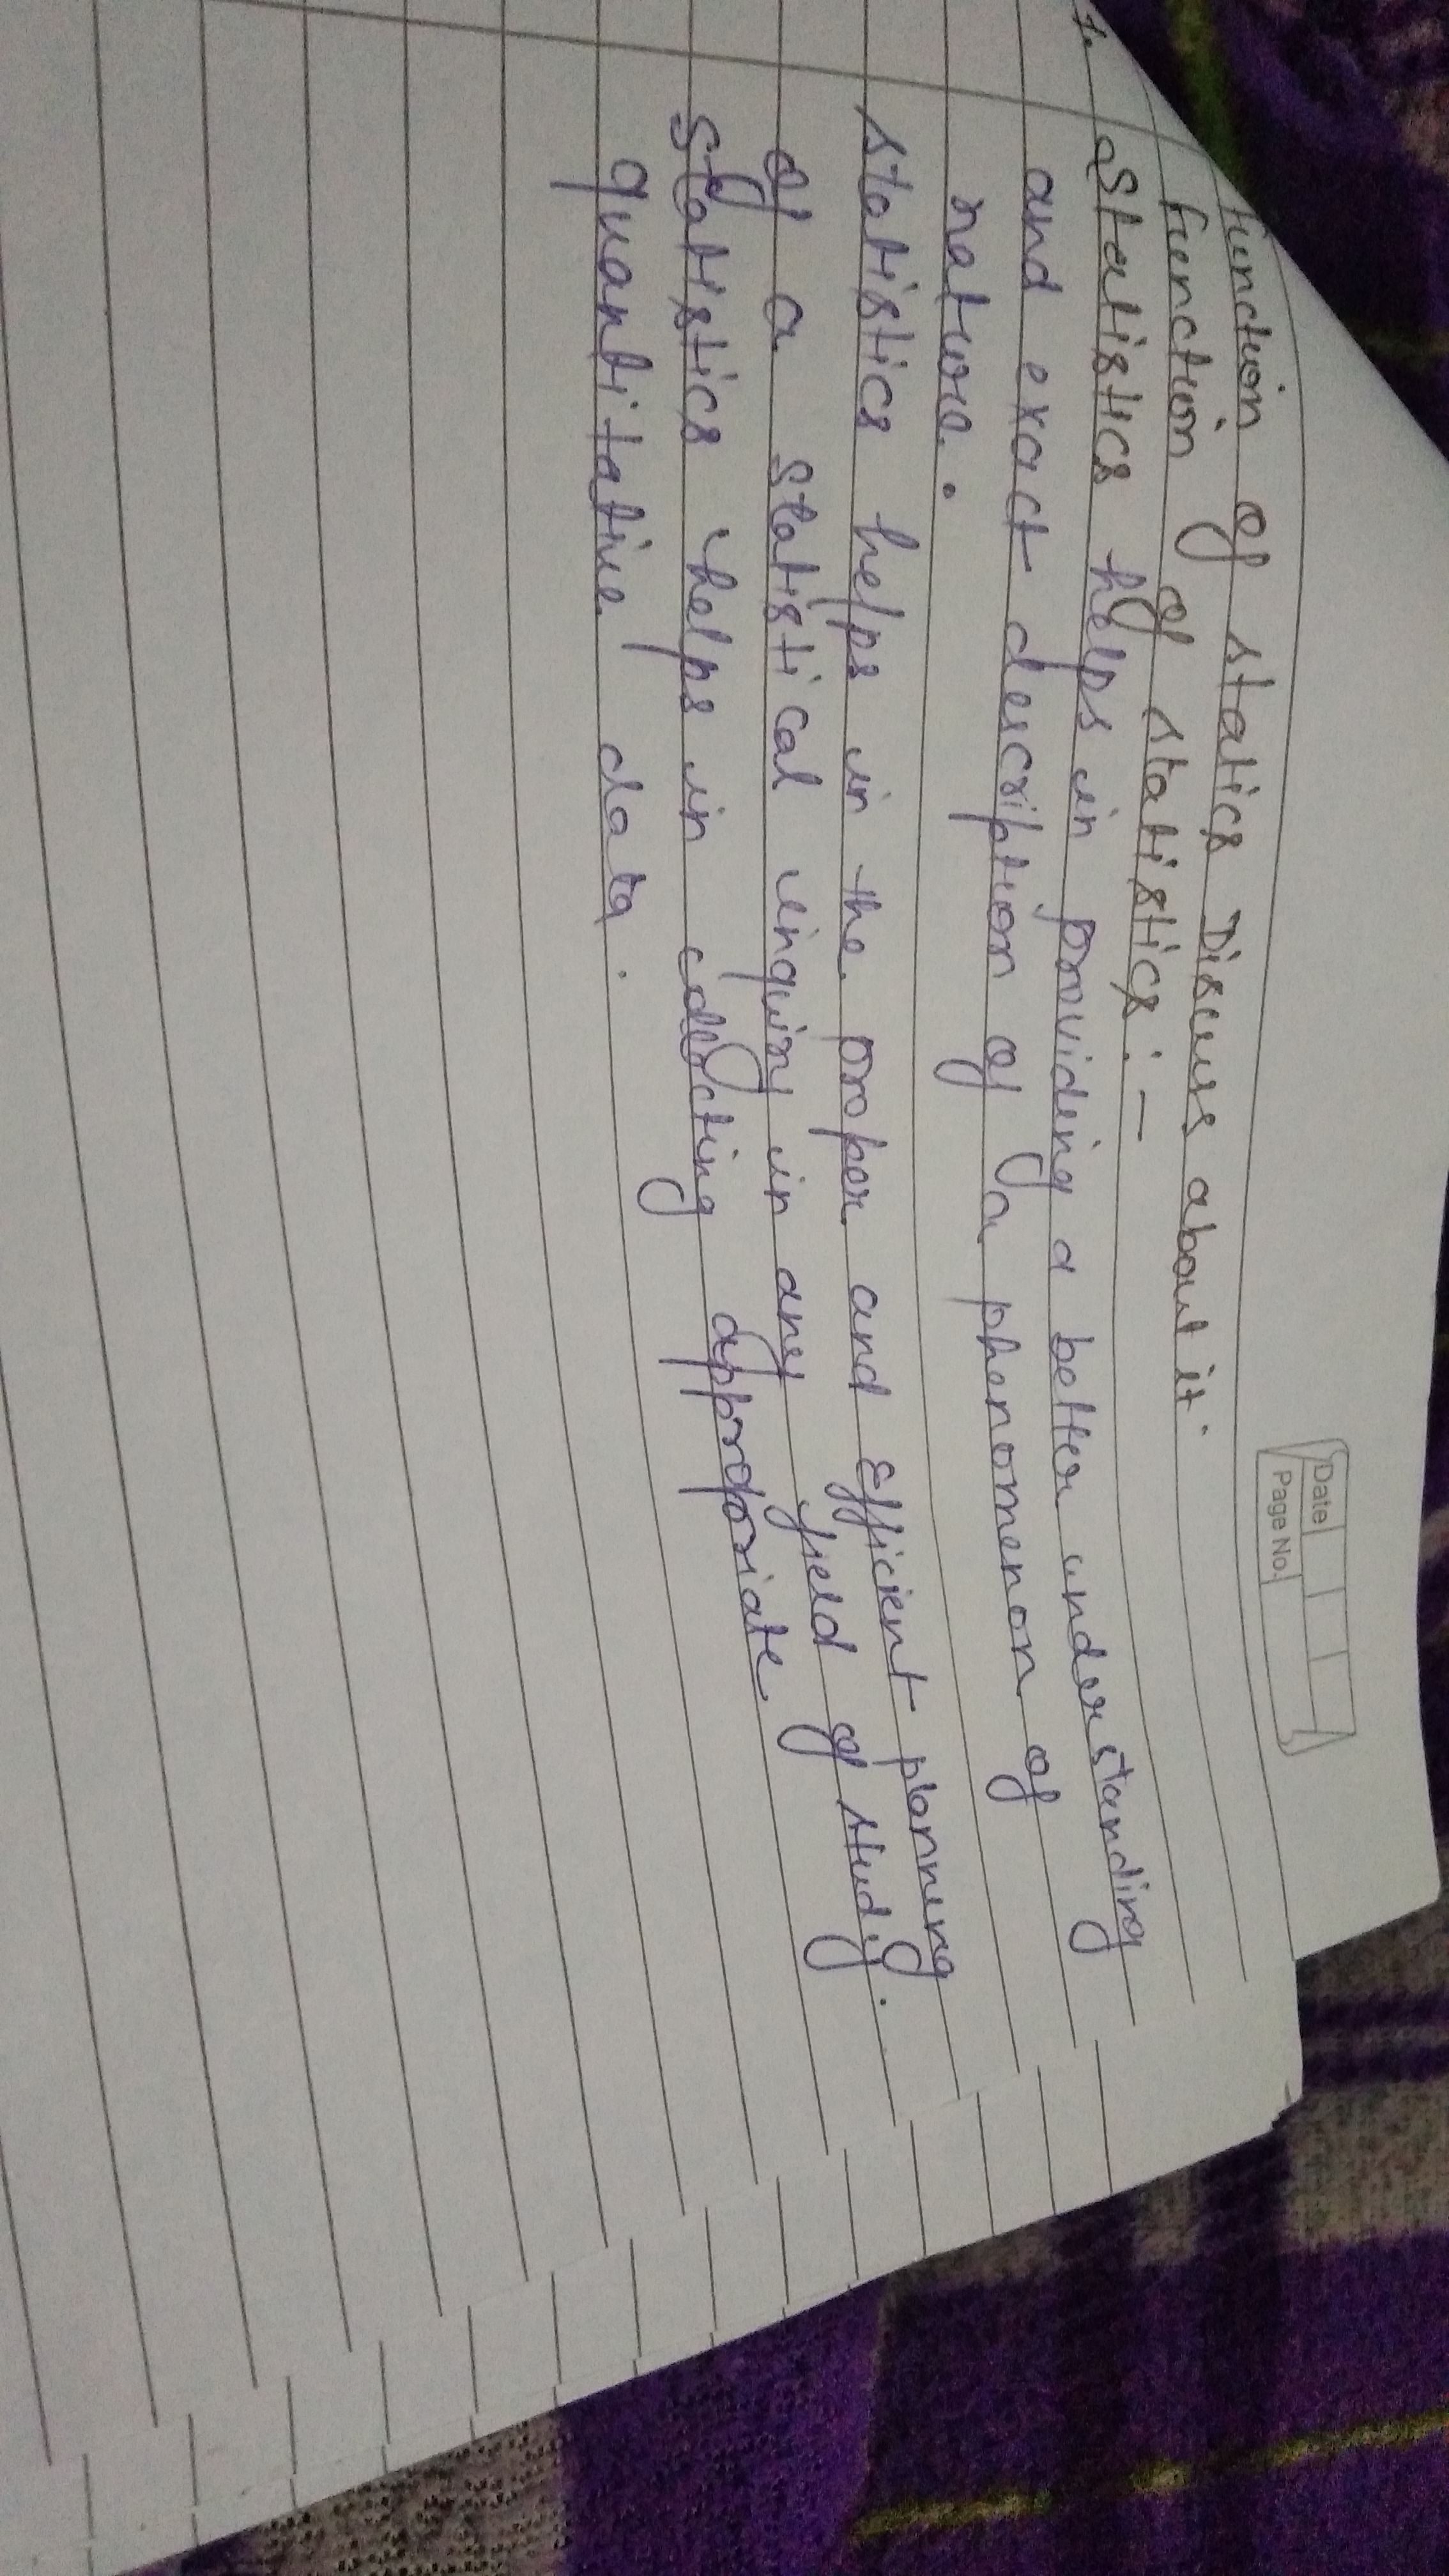 Date
Page No.
function of statics Discuss about it.
function of statistics :-
1. Statistics helps in providing a better understanding
and exact description of a phenomenon of
nature.
statistics helps in the proper and efficient planning
of a statistical inquiry in any field of study.
Statistics helps in collecting appropriate
quantitative data.